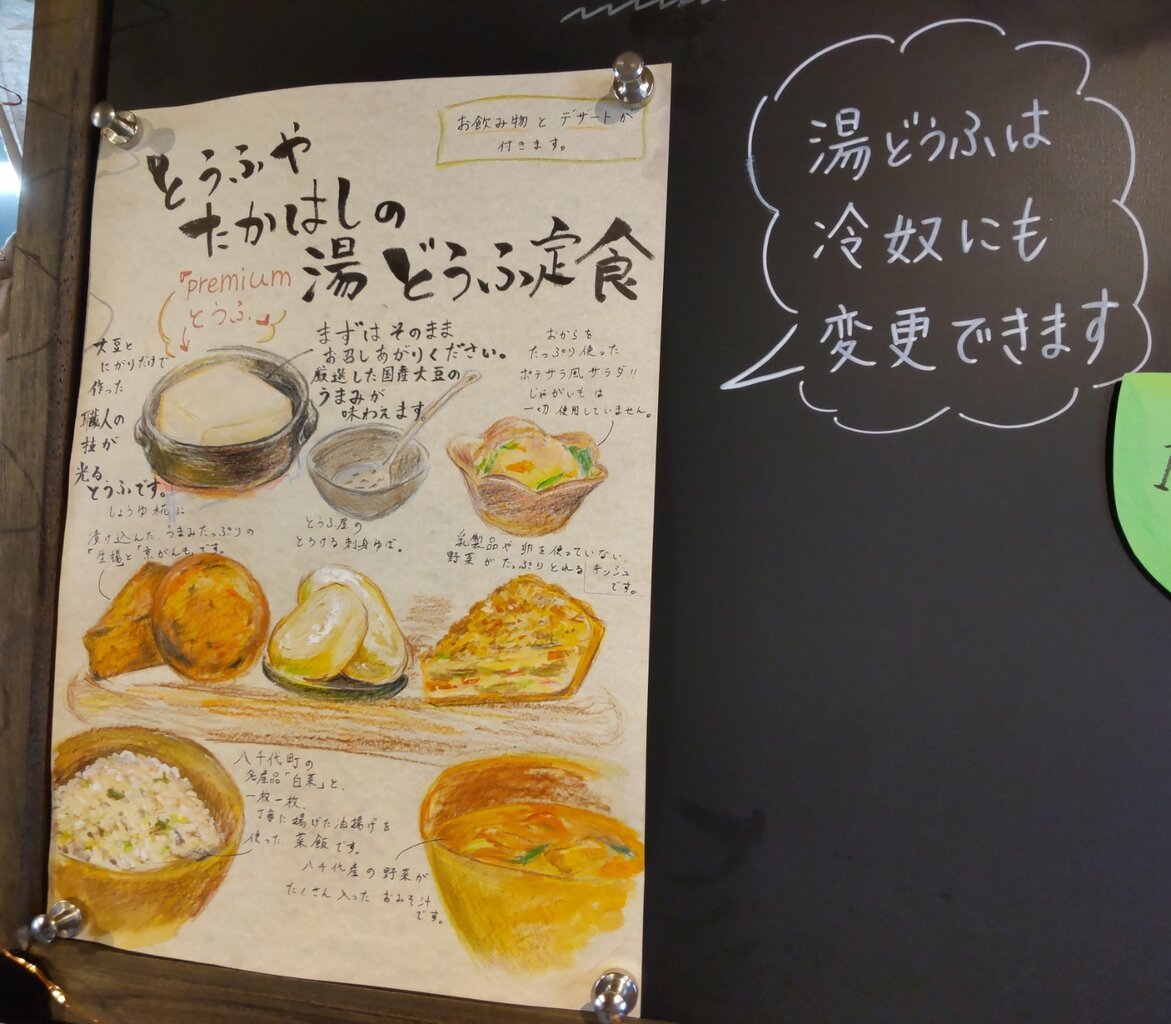 お飲み物とデザートが
付きます。
とうふや
たかはしの
湯どうふ定食
「premium
とうふ」
大豆と
にがりだけで
作った
職人の
技が
光る
とうふです。
まずはそのまま
お召しあがりください。
厳選した国産大豆の
うまみが
味わえます。
おからを
たっぷり使った
ポテサラ風サラダ!!
じゃがいもは
一切使用していません。
しょうゆ糀に
漬け込んだ、うまみたっぷりの
「生揚と「京がんも」です。
とうふ屋の
とろける刺身ゆば。
乳製品や卵を使っていない、
野菜がたっぷりとれるキッシュ
です。
八千代町の
名産品「白菜」と、
一枚一枚、
丁寧に揚げた油揚げを
使った菜飯です。
八千代産の野菜が
たくさん入ったおみそ汁
です。
湯どうふは
冷奴にも
変更できます